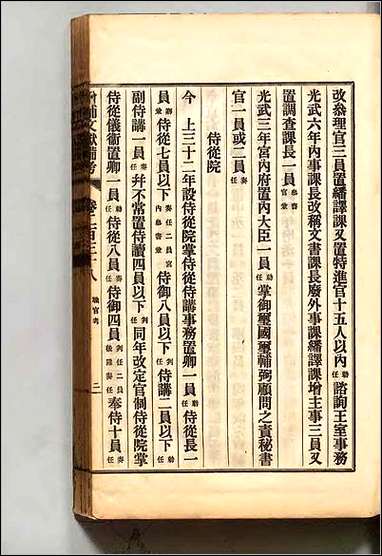 改叅理官三員置繙譯課又置特進官十五人以內勅任諮詢王室事務
光武六年內事課長改稱文書課長廢外事課繙譯課增主事三員又
置調查課長一員
光武三年宮內府置內大臣一員勅任掌御璽國璽輔弼顧問之責秘書
官一員或二員奏任
侍從院
今上三十二年設侍從院掌侍從侍講事務置卿一員勅任侍從長一
員勅任侍從七員以下侍御八員以下判任侍講二員以下勅任
副侍講一員奏任幷不常置侍讀四員以下判任同年改定官制侍從院掌
侍從儀衛置卿一員勅任侍從八員侍御四員奉侍十員判任
增補文獻備考 卷二百三十八 職官考 二